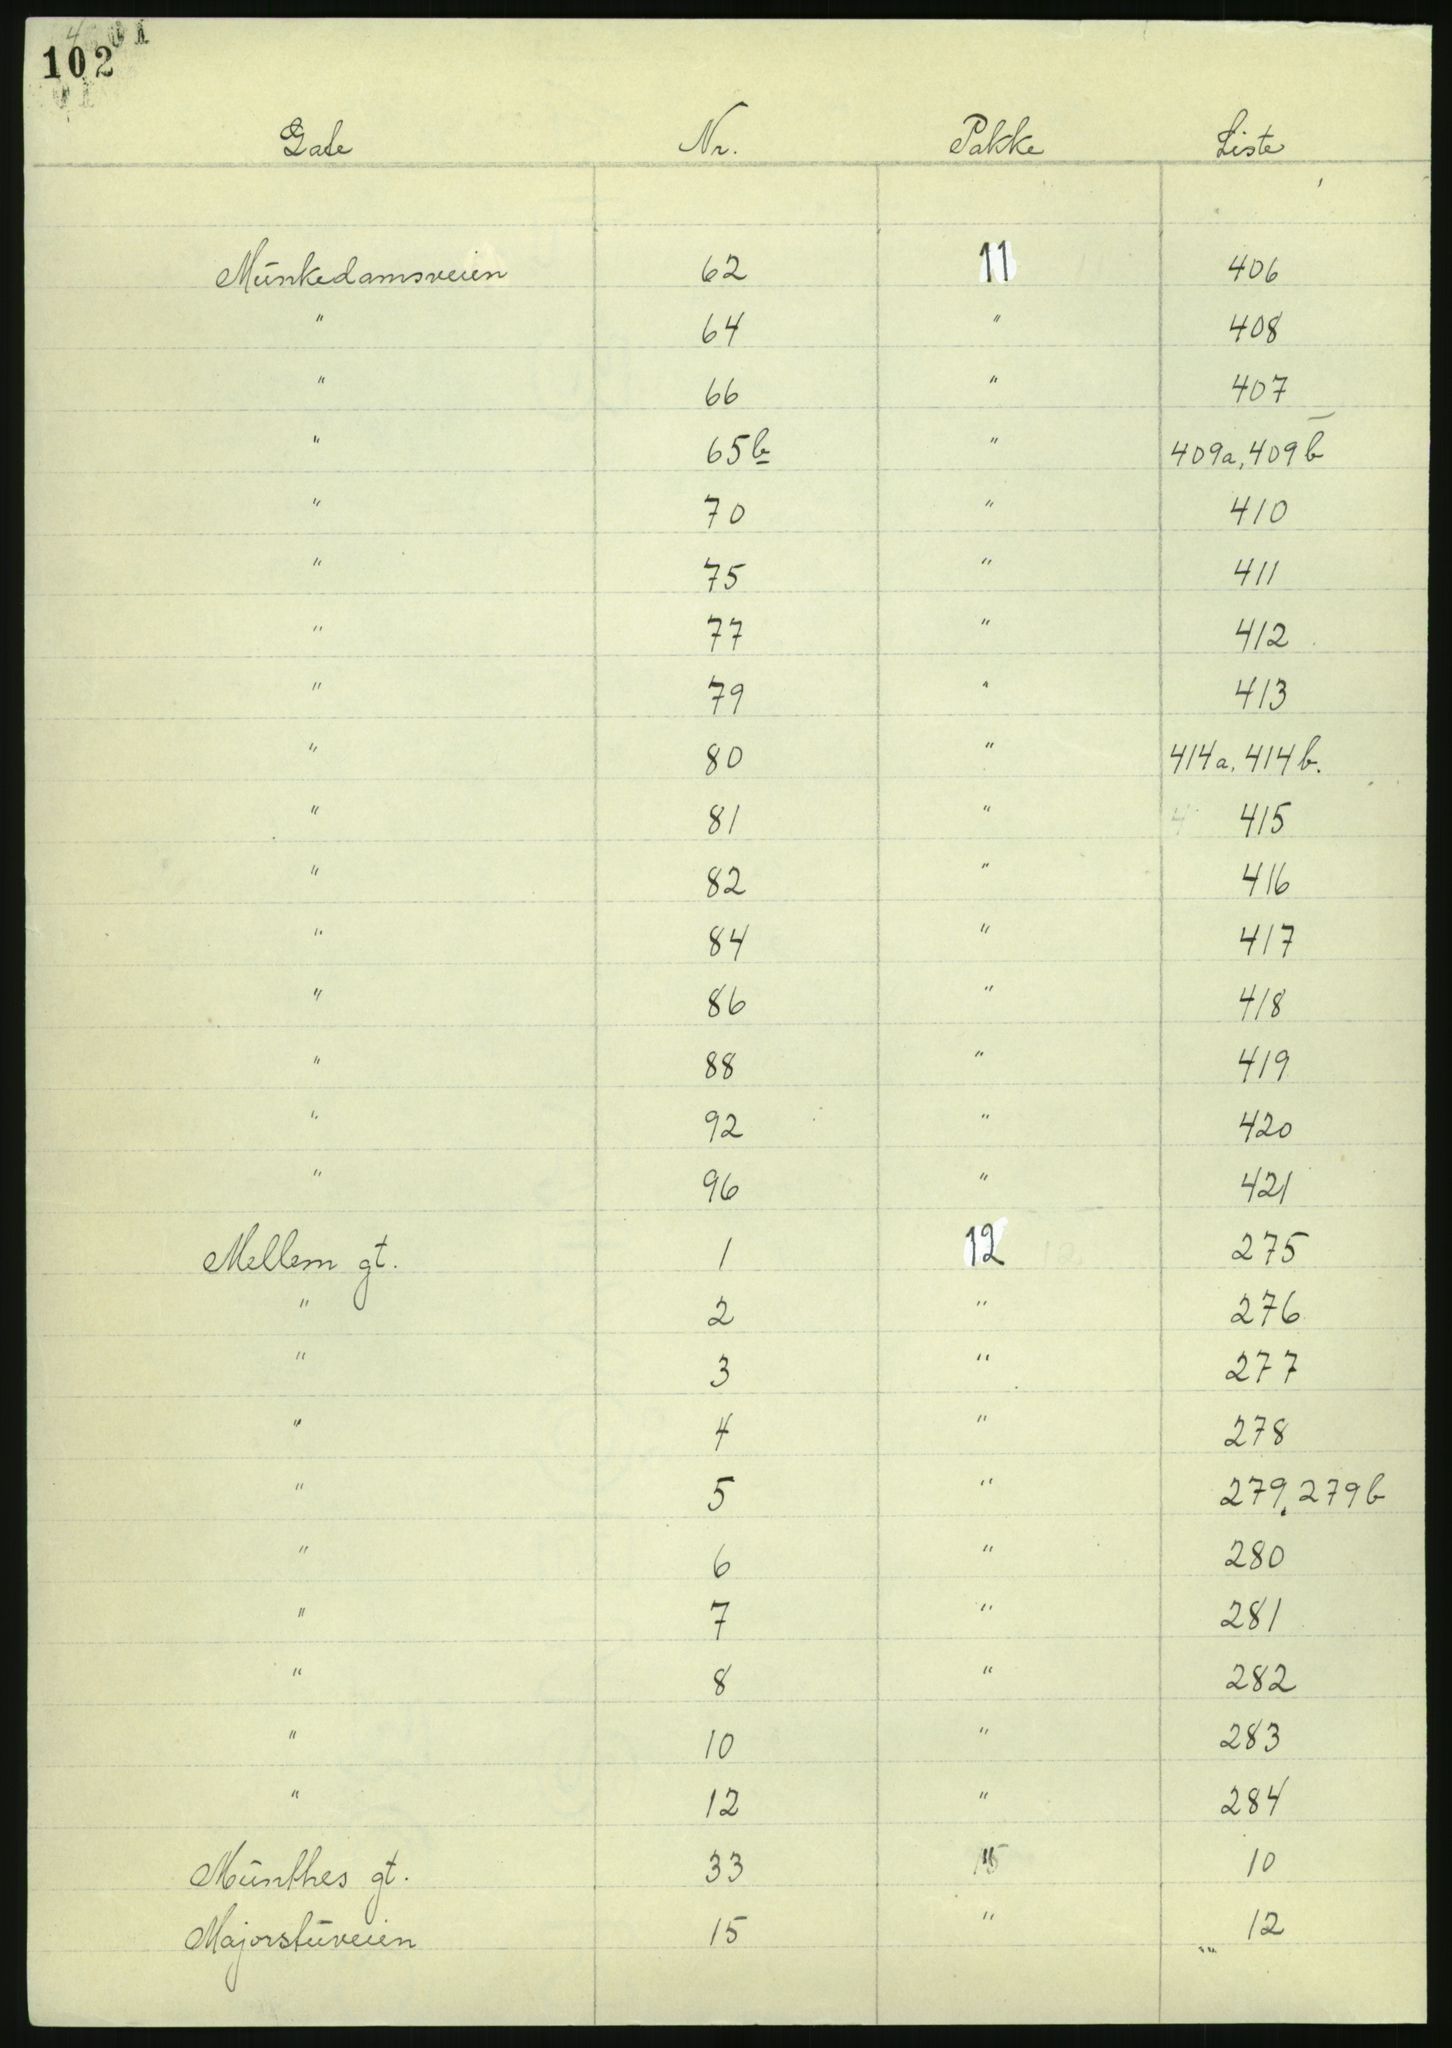 102
Gate Nr. Pakke Liste
Munkedamsveien 62 11 406
" 64 " 408
" 66 " 407
" 65b " 409a, 409b
" 70 " 410
" 75 " 411
" 77 " 412
" 79 " 413
" 80 " 414a, 414b.
" 81 " 415
" 82 " 416
" 84 " 417
" 86 " 418
" 88 " 419
" 92 " 420
" 96 " 421
Mellem gt. 1 12 275
" 2 " 276
" 3 " 277
" 4 " 278
" 5 " 279, 279b
" 6 " 280
" 7 " 281
" 8 " 282
" 10 " 283
" 12 " 284
Munthes gt. 33 " 10
Majorstuveien 15 " 12